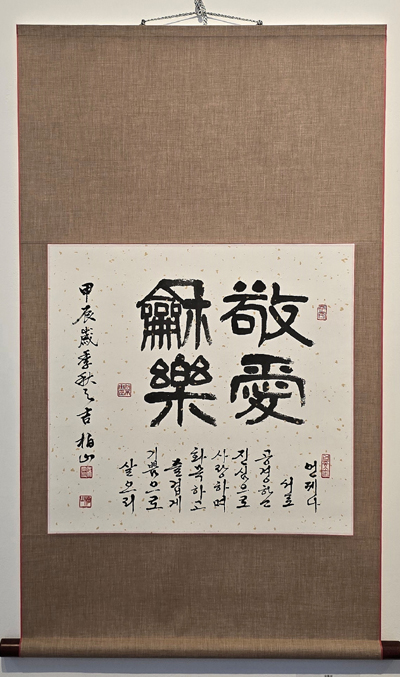 敬愛
龢樂
언제나
서로
공경하는
진심으로
사랑하며
화목하고
즐겁게
기쁨으로
살으리
甲辰歲季秋之吉 柏山